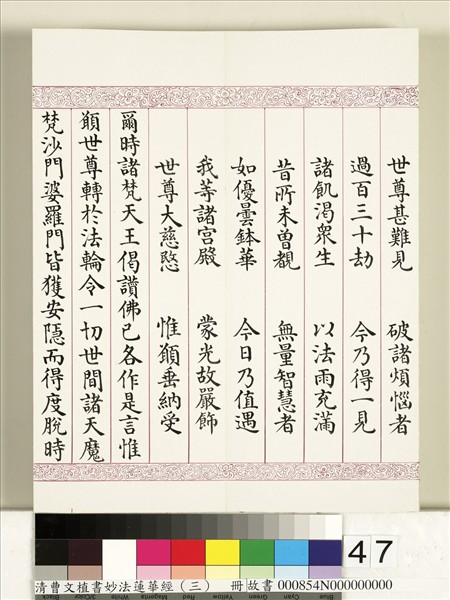 世尊甚難見 破諸煩惱者
過百三十劫 今乃得一見
諸飢渴衆生 以法雨充滿
昔所未曽覩 無量智慧者
如優曇鉢華 今日乃值遇
我等諸宮殿 蒙光故嚴飾
世尊大慈愍 惟願垂納受
爾時諸梵天王偈讚佛已各作是言惟
願世尊轉於法輪令一切世間諸天魔
梵沙門婆羅門皆獲安隱而得度脫時
47
清曹文植書妙法蓮華經（三） 冊 故書 000854N000000000
Blue Cyan Green Yellow Red Magenta White 3/Color Black